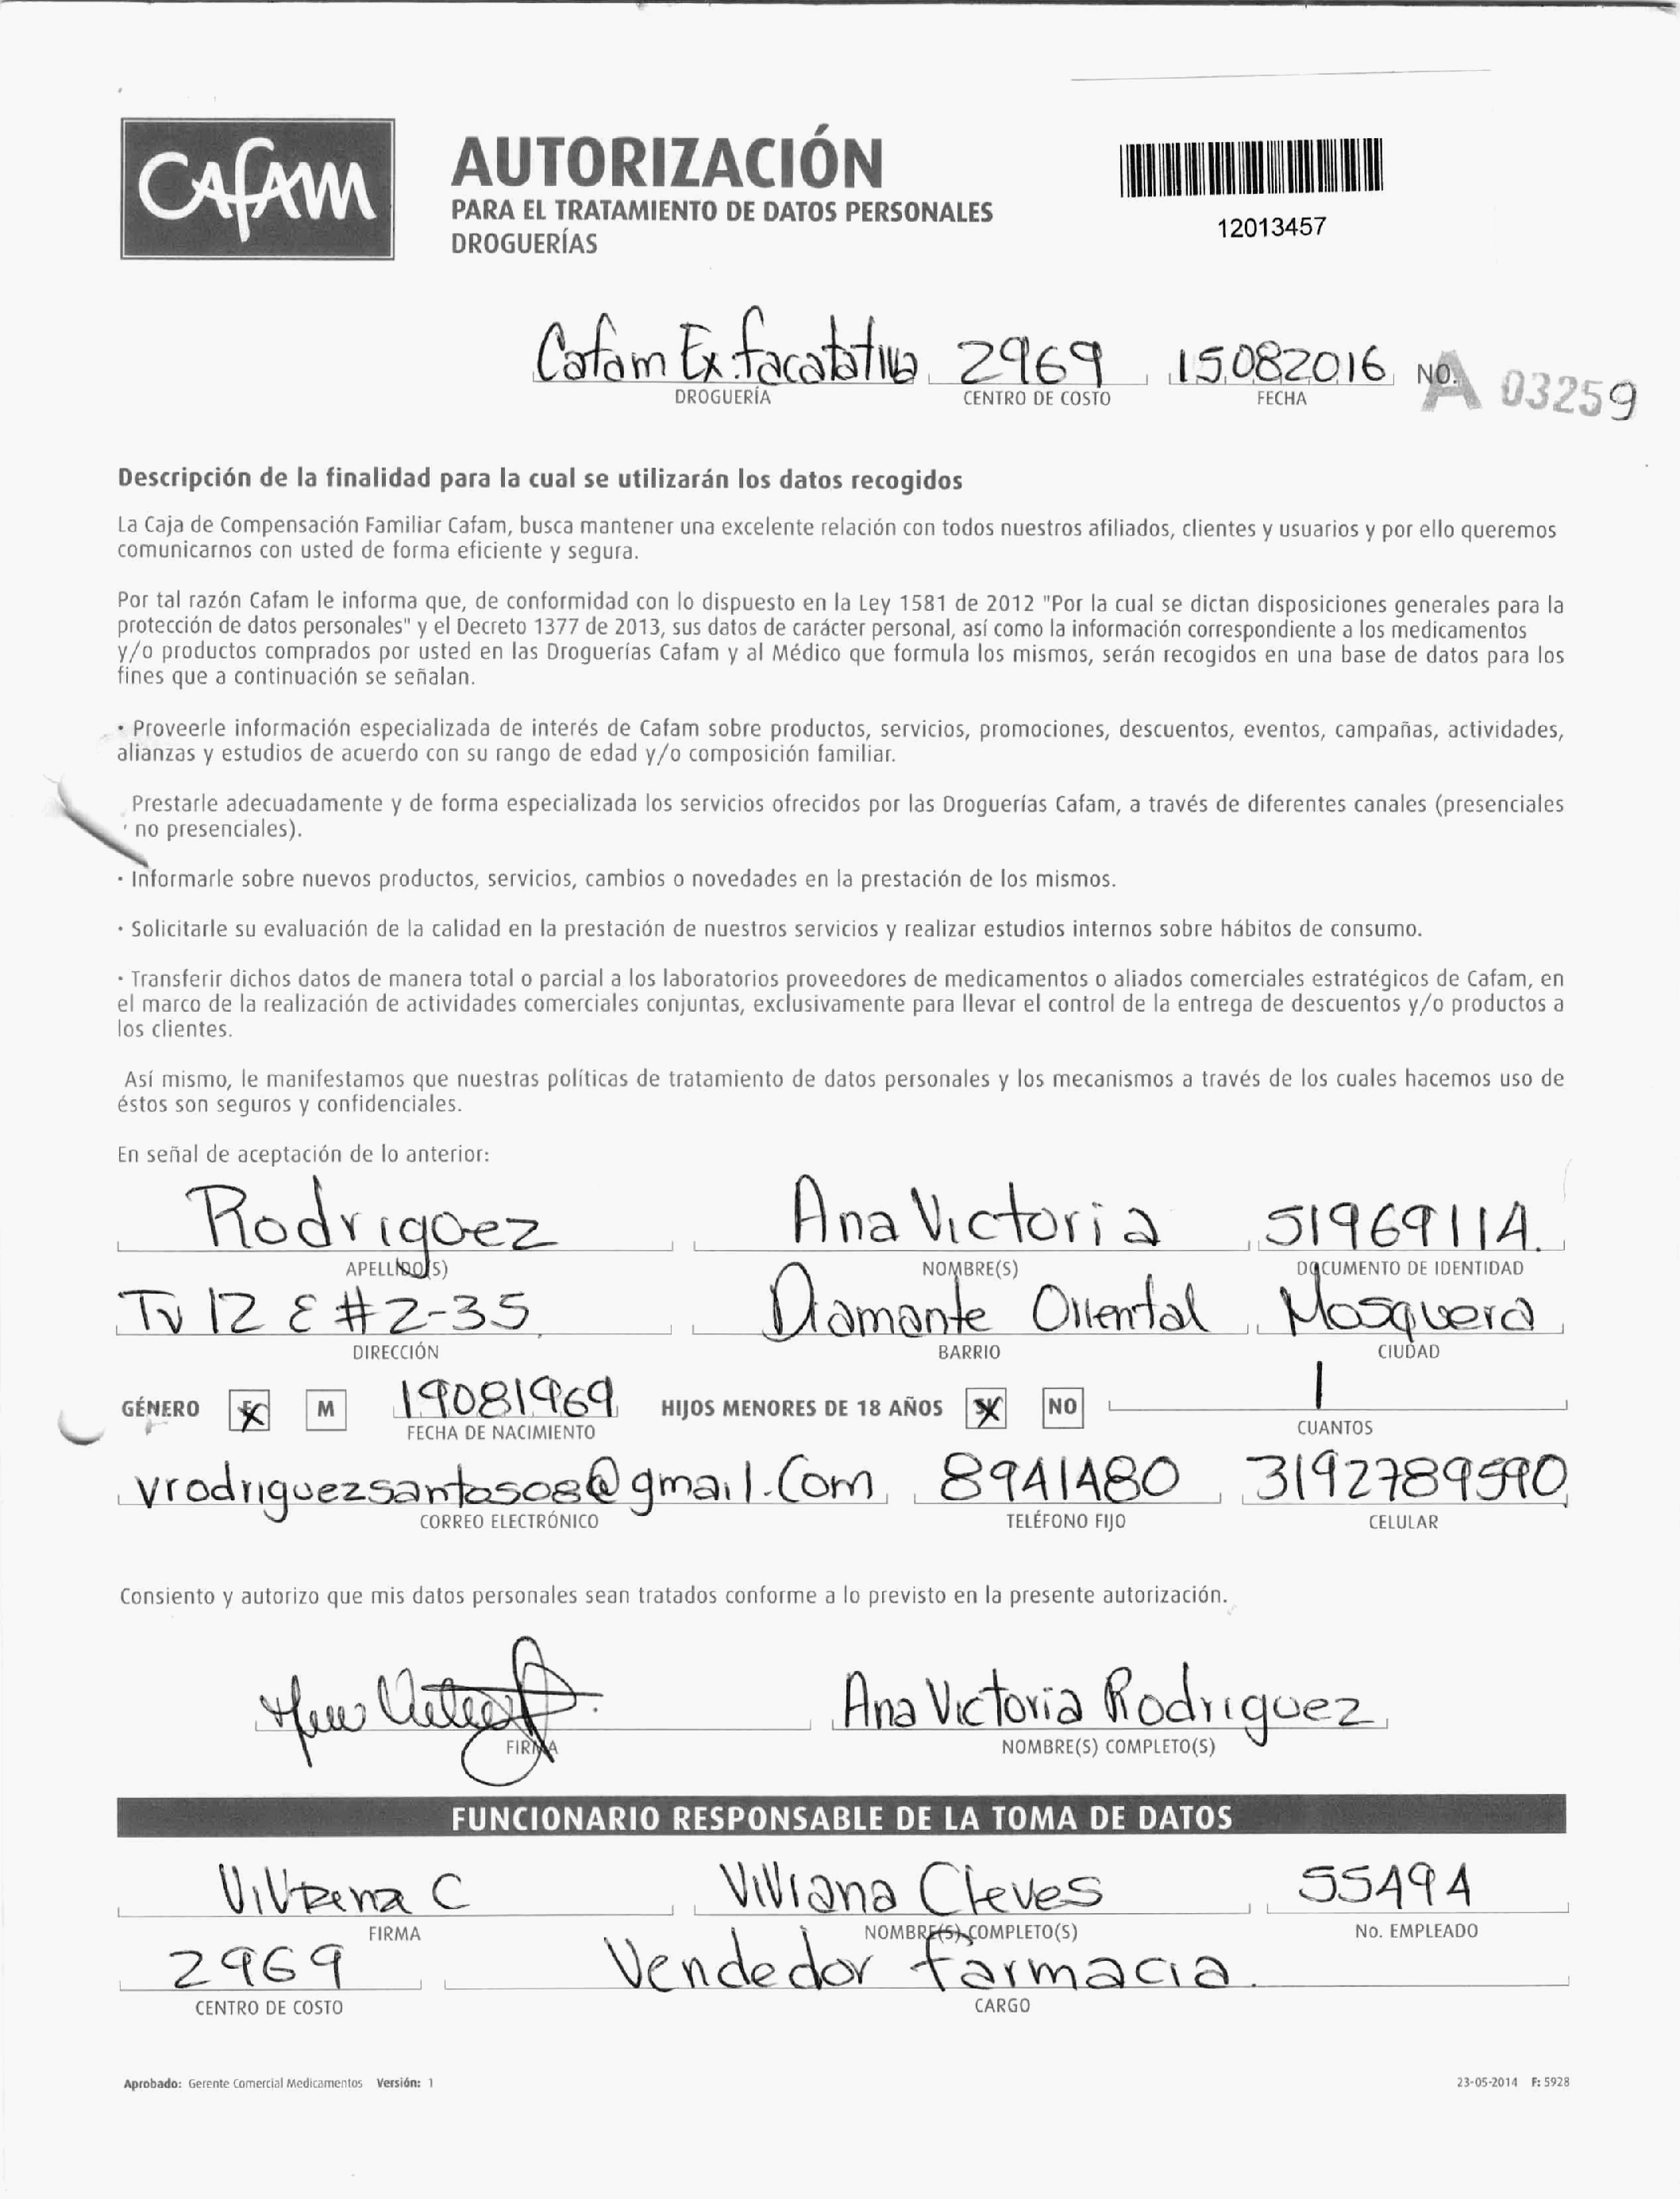 CAFAM
AUTORIZACIÓN
PARA EL TRATAMIENTO DE DATOS PERSONALES
DROGUERÍAS
12013457
Cafam Ex facatativa 2969 15082016 NO. A 03259
DROGUERÍA CENTRO DE COSTO FECHA
Descripción de la finalidad para la cual se utilizarán los datos recogidos
La Caja de Compensación Familiar Cafam, busca mantener una excelente relación con todos nuestros afiliados, clientes y usuarios y por ello queremos
comunicarnos con usted de forma eficiente y segura.
Por tal razón Cafam le informa que, de conformidad con lo dispuesto en la Ley 1581 de 2012 "Por la cual se dictan disposiciones generales para la
protección de datos personales" y el Decreto 1377 de 2013, sus datos de carácter personal, así como la información correspondiente a los medicamentos
y/o productos comprados por usted en las Droguerías Cafam y al Médico que formula los mismos, serán recogidos en una base de datos para los
fines que a continuación se señalan.
· Proveerle información especializada de interés de Cafam sobre productos, servicios, promociones, descuentos, eventos, campañas, actividades,
alianzas y estudios de acuerdo con su rango de edad y/o composición familiar.
Prestarle adecuadamente y de forma especializada los servicios ofrecidos por las Droguerías Cafam, a través de diferentes canales (presenciales
no presenciales).
· Informarle sobre nuevos productos, servicios, cambios o novedades en la prestación de los mismos.
· Solicitarle su evaluación de la calidad en la prestación de nuestros servicios y realizar estudios internos sobre hábitos de consumo.
· Transferir dichos datos de manera total o parcial a los laboratorios proveedores de medicamentos o aliados comerciales estratégicos de Cafam, en
el marco de la realización de actividades comerciales conjuntas, exclusivamente para llevar el control de la entrega de descuentos y/o productos a
los clientes.
Así mismo, le manifestamos que nuestras políticas de tratamiento de datos personales y los mecanismos a través de los cuales hacemos uso de
éstos son seguros y confidenciales.
En señal de aceptación de lo anterior:
Rodriguez Ana Victoria 51969114.
APELLIDO(S) NOMBRE(S) DOCUMENTO DE IDENTIDAD
Tv 12 E #2-35 Diamante Oriental Mosquera
DIRECCIÓN BARRIO CIUDAD
GÉNERO M 19081969 HIJOS MENORES DE 18 AÑOS NO 1
FECHA DE NACIMIENTO CUANTOS
vrodriguezsantos08@gmail.com 8941480 3192789590
CORREO ELECTRÓNICO TELÉFONO FIJO CELULAR
Consiento y autorizo que mis datos personales sean tratados conforme a lo previsto en la presente autorización.
Ana Victoria Rodriguez
FIRMA NOMBRE(S) COMPLETO(S)
FUNCIONARIO RESPONSABLE DE LA TOMA DE DATOS
Viviana C Viviana Cleves 55494
FIRMA NOMBRE(S) COMPLETO(S) No. EMPLEADO
2969 Vendedor farmacia.
CENTRO DE COSTO CARGO
Aprobado: Gerente Comercial Medicamentos Versión: 1 23-05-2014 F: 5928